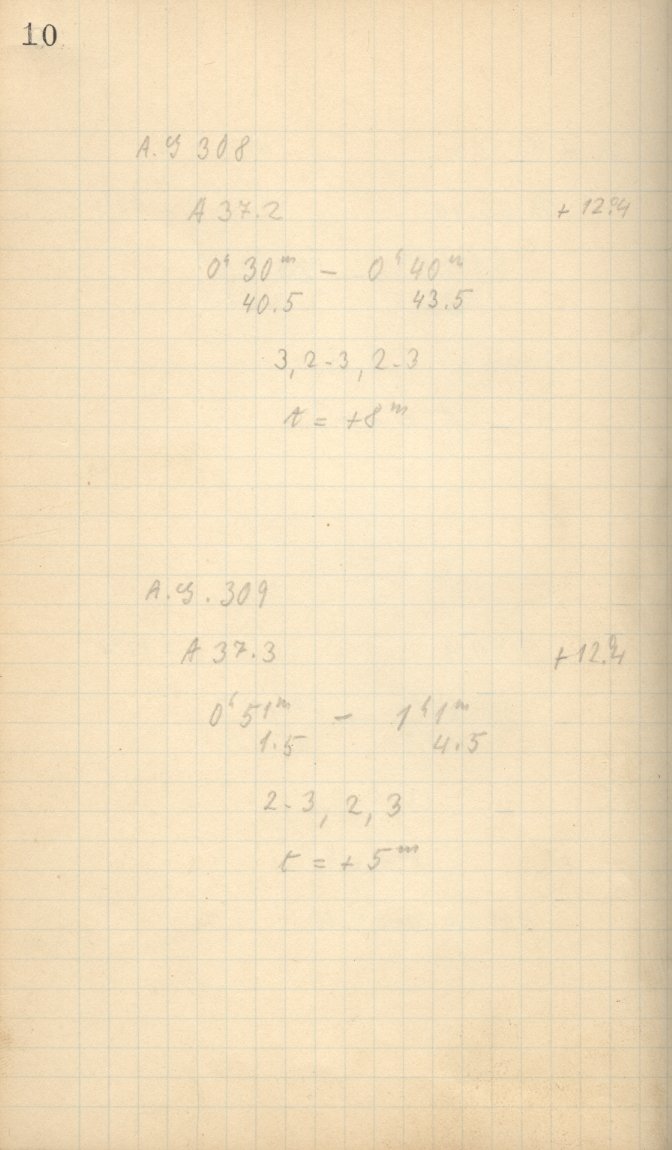 10
A.G 308
A 37.2 + 12°.4
0h 30m – 0h 40m
40.5 43.5
3, 2-3, 2-3
t = +8m
A.G. 309
A 37.3 + 12°.4
0h 51m – 1h 1m
1.5 4.5
2-3, 2, 3
t = + 5m